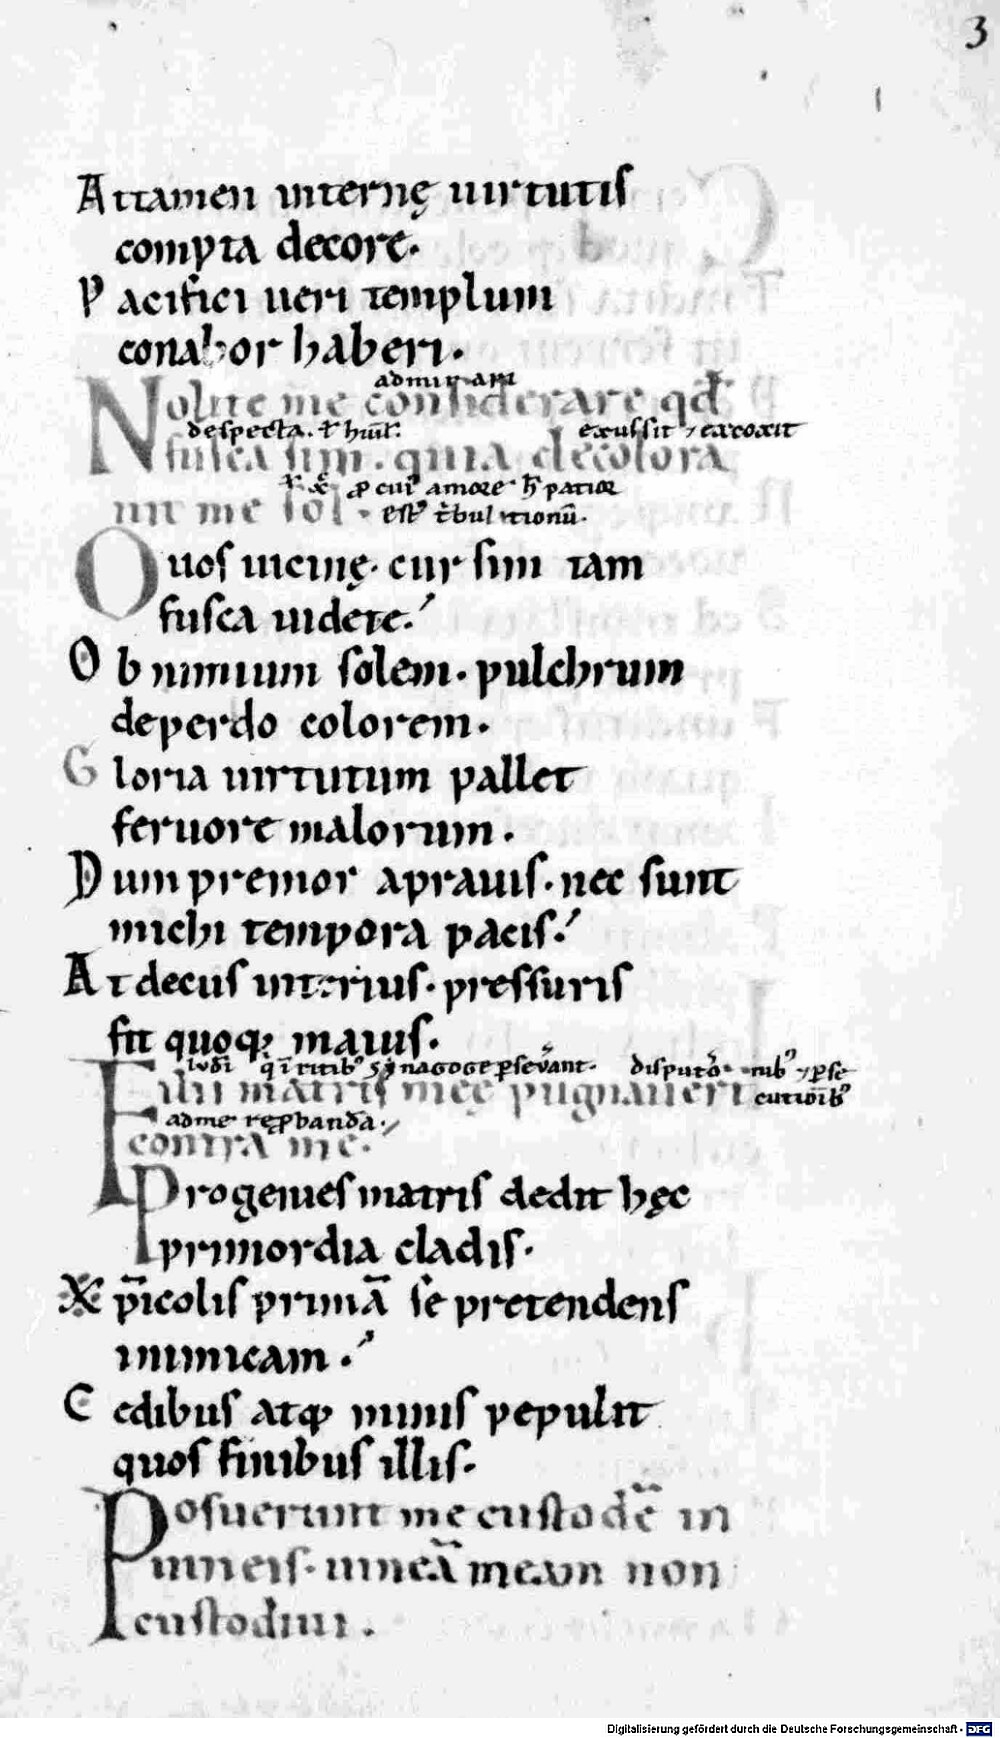 3
Attamen internę uirtutis
compta decore.
Pacifici ueri templum
conabor haberi.
admiram
Nolite me considerare qđ
despecta. ł hum̄.
exussit ⁊ excoxit
fusca sim. quia decolora
cui amore h patior
uit me sol.
est t̾bulationū.
Quos uicinę. cur sim tam
fusca uidete.
Ob nimium solem. pulchrum
deperdo colorem.
Gloria uirtutum pallet
feruore malorum.
Dum premor aprauis. nec sunt
michi tempora pacis.
At decus interius. pressuris
fit quoq; maius.
iudi qui ritib synagoge ꝑseverant. disputō nib ⁊ ꝑse
Filii matris meę pugnauert cutiōib
adme reꝓbanda.
contra me.
Progenies matris dedit hęc
primordia cladis.
Xp̄icolis primā se pretendens
inimicam.
Cedibus atq minis pepulit
quos finibus illis.
Posuerunt me custodē in
uineis. uineā meam non
custodiui.
Digitalisierung gefördert durch die Deutsche Forschungsgemeinschaft - DFG